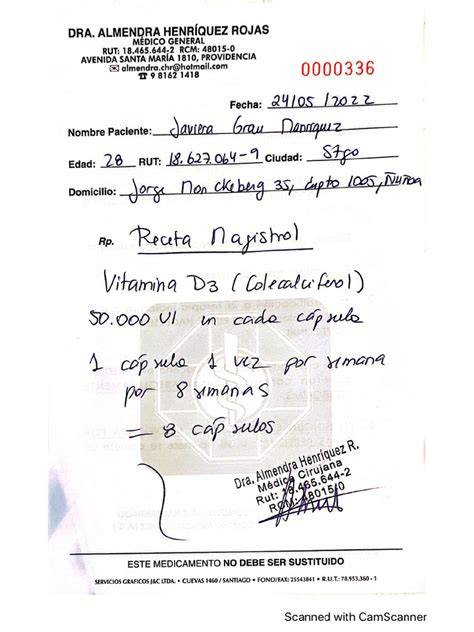 DRA. ALMENDRA HENRÍQUEZ ROJAS
MÉDICO GENERAL
RUT: 18.465.644-2 RCM: 48015-0
AVENIDA SANTA MARÍA 1810, PROVIDENCIA
almendra.chr@hotmail.com
9 8162 1418
0000336
Fecha: 24/05/2022
Nombre Paciente: Javiera Grau Manríquez
Edad: 28 RUT: 18.627.064-9 Ciudad: Stgo
Domicilio: Jorge Monckeberg 35, Depto 1005, Ñuñoa
Rp. Receta Magistral
Vitamina D3 (Colecalciferol)
50.000 UI en cada cápsula
1 cápsula 1 vez por semana
por 8 semanas
= 8 cápsulas
Dra. Almendra Henríquez R.
Médico Cirujana
Rut: 18.465.644-2
RCM: 48015/0
ESTE MEDICAMENTO NO DEBE SER SUSTITUIDO
SERVICIOS GRAFICOS J&C LTDA. • CUEVAS 1460 / SANTIAGO • FONO/FAX: 25543841 • R.U.T.: 78.953.360 - 1
Scanned with CamScanner